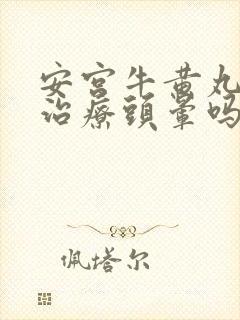 安宫牛黄丸
治療頭暈吗
佩塔尔